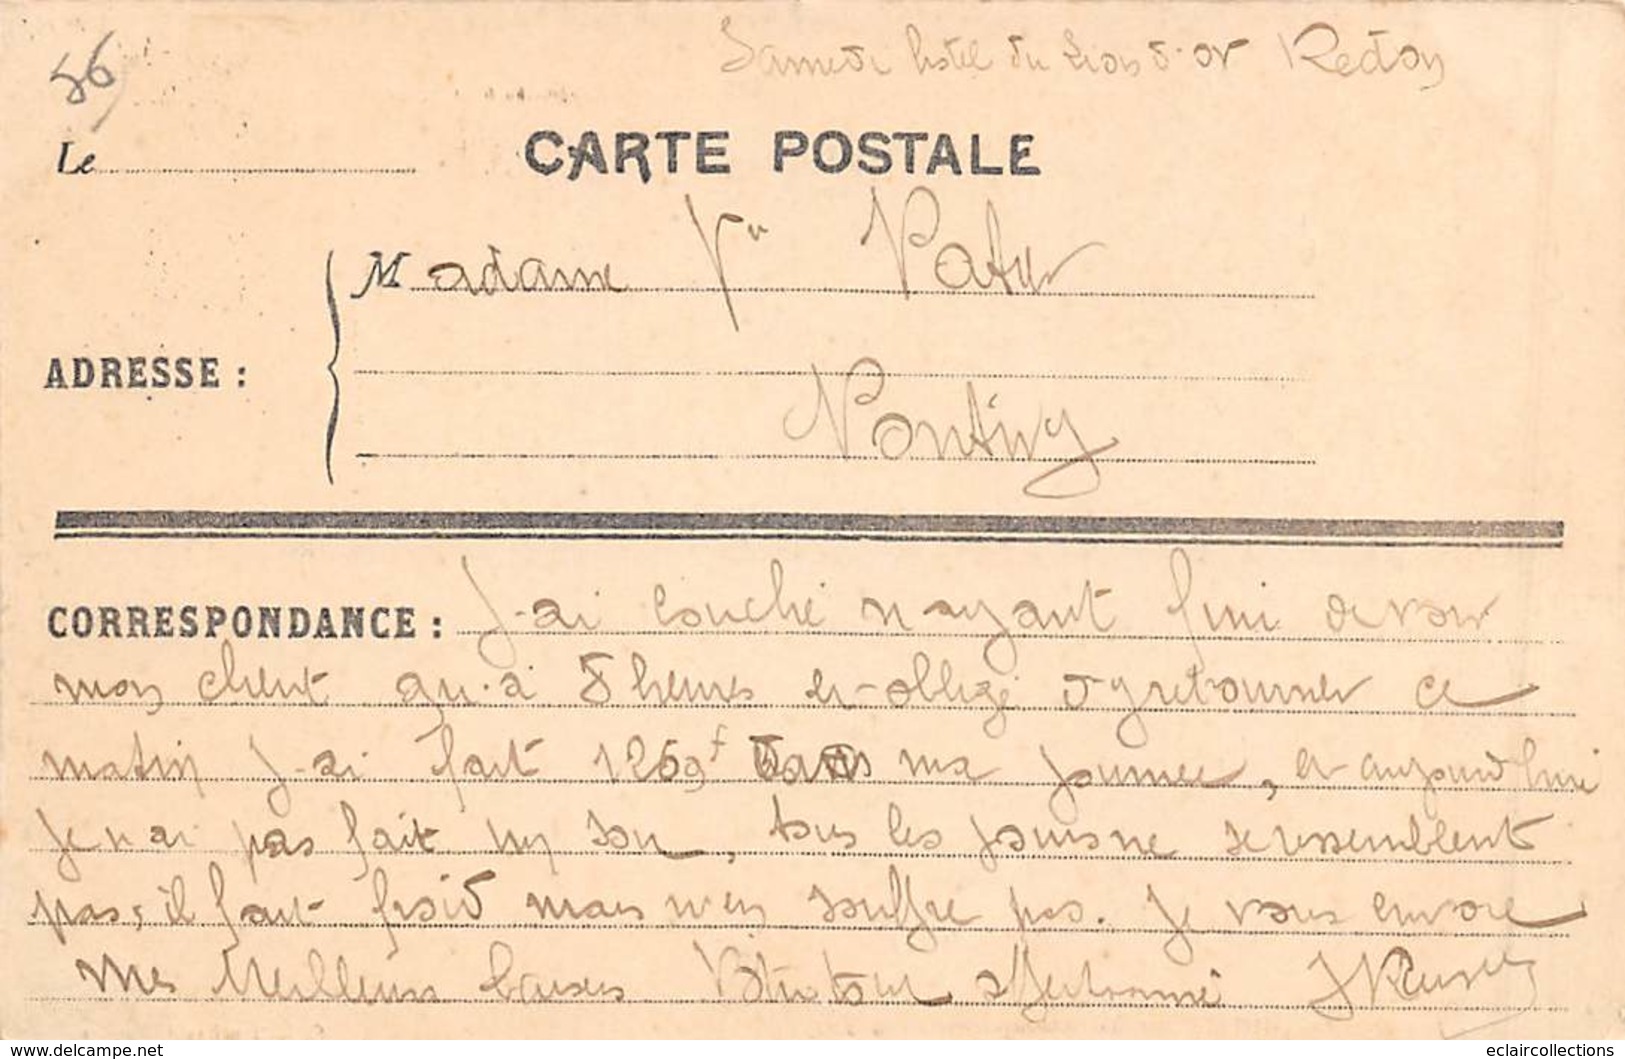 56
Samedi hotel du Lion d'or Redon
CARTE POSTALE
Le
Madame Vve
ADRESSE :
Pontivy
CORRESPONDANCE : J'ai couché n'ayant fini de voir
mon client qu'à 5 heures et obligé d'y retourner ce
matin j'ai fait 1269f dans ma journée, et aujourd'hui
je n'ai pas fait un sou, tous les jours ne se ressemblent
pas, il fait froid mais n'en souffre pas. Je vous envoie
mes meilleurs baisers Votre tout affectionné
www.delcampe.net
eclaircollections